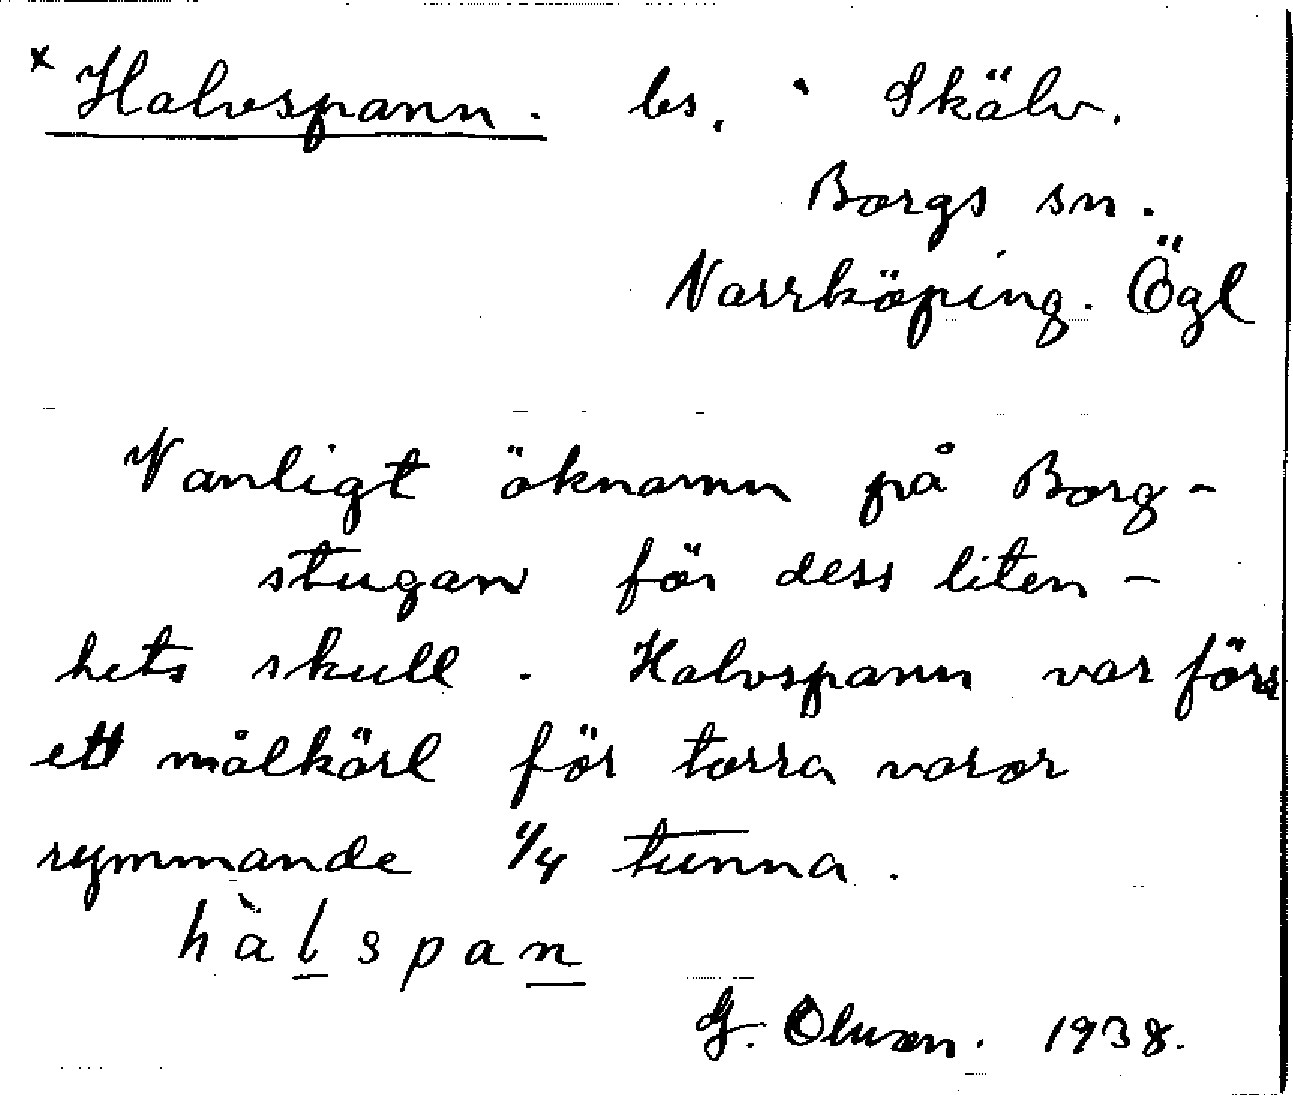 x Halvspann. bs. Skälv.
Borgs sn.
Norrköping. Ögl
Vanligt öknamn på Borg-
stugan för dess liten-
hets skull. Halvspann var förr
ett målkärl för torra varor
rymmande 1/4 tunna.
hàlspan
G. Olsson. 1938.